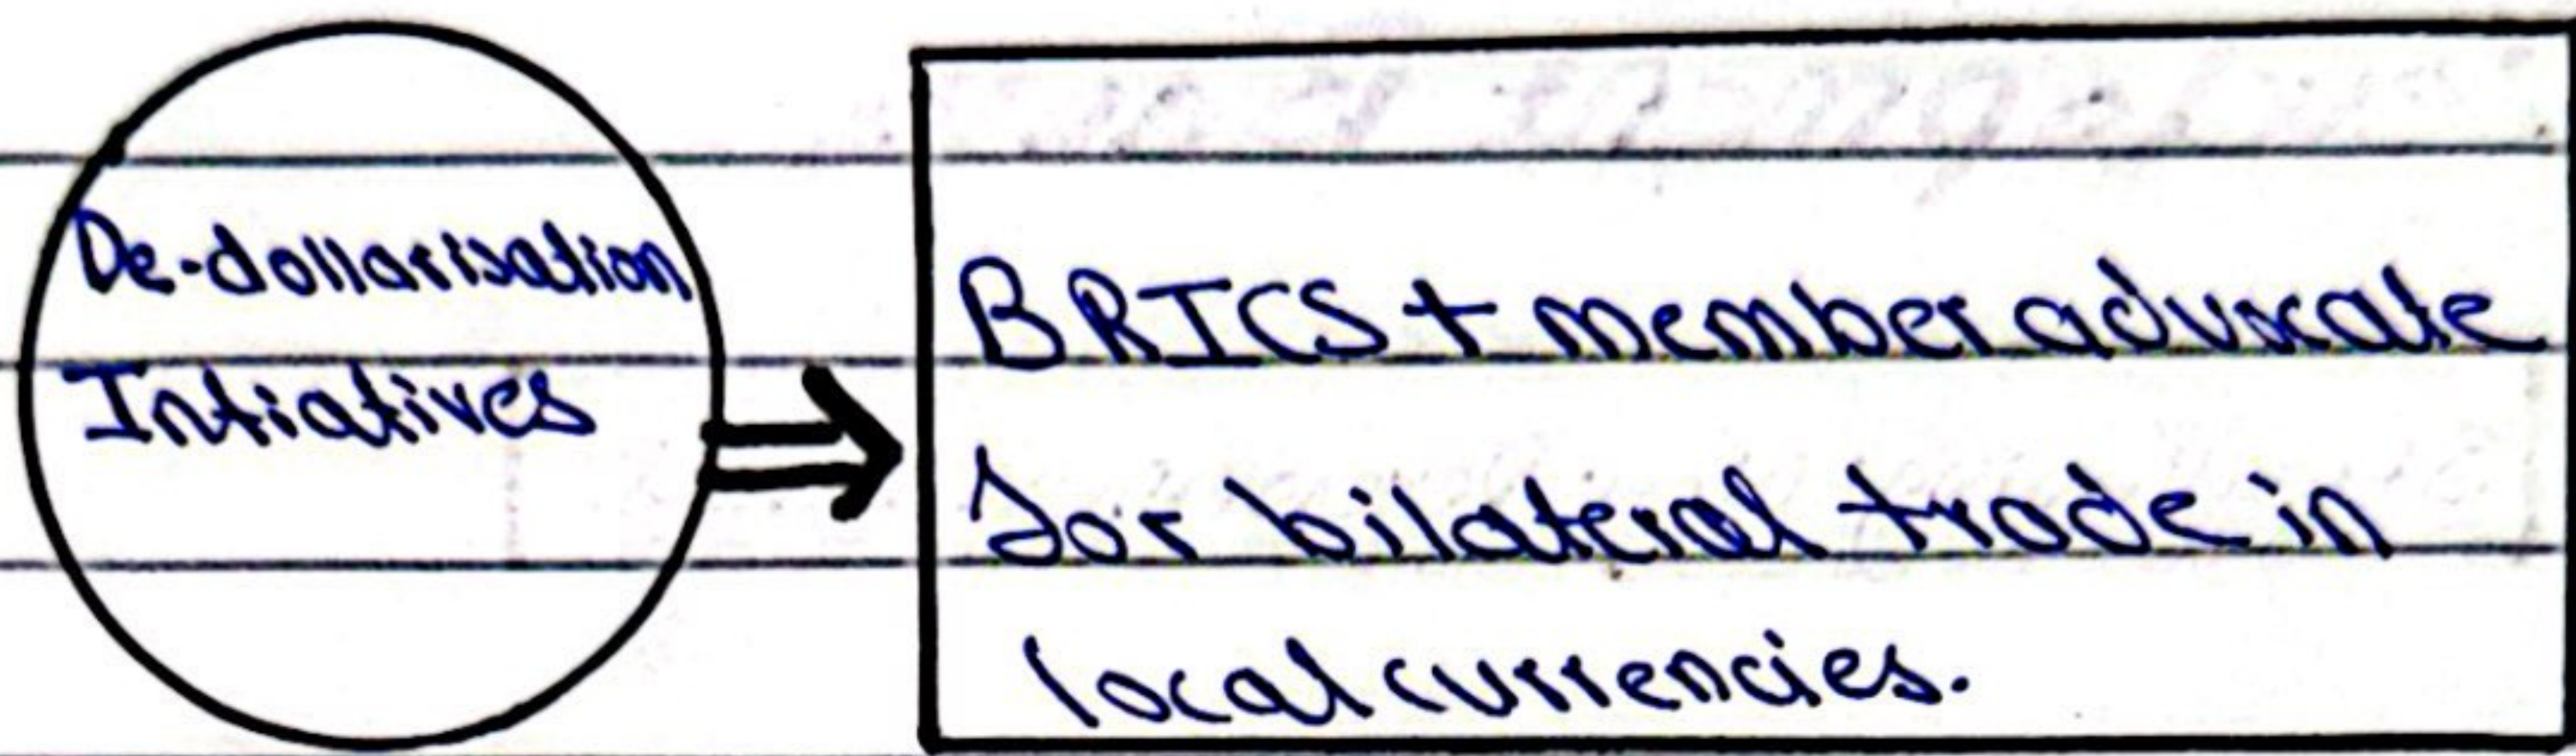 De-dollarisation
Intiatives
BRICS + member advocate
for bilateral trade in
local currencies.